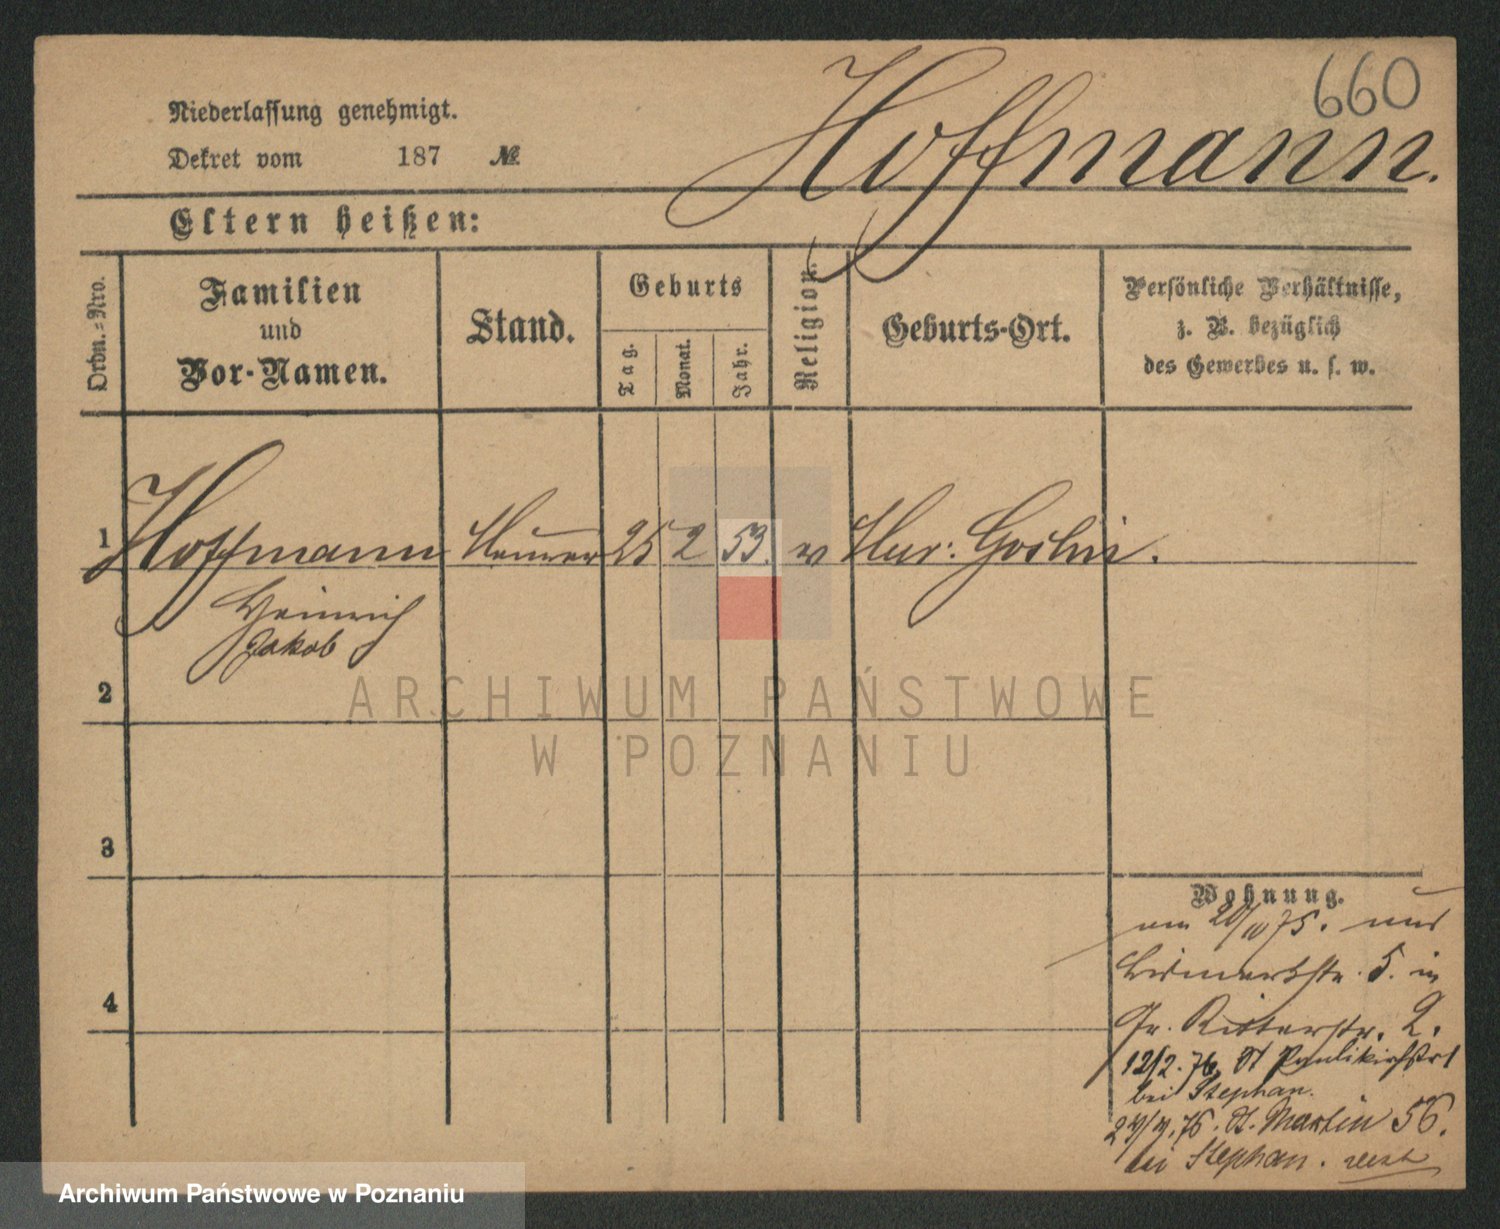 660
Hoffmann.
Niederlassung genehmigt.
Dekret vom 187 №
Eltern heißen:
Ordn.=Nro.
Familien
und
Vor-Namen.
Stand.
Geburts
Tag.
Monat.
Jahr.
Religion.
Geburts-Ort.
Persönliche Verhältnisse,
z. B. bezüglich
des Gewerbes u. s. w.
1 Hoffmann 25 2 53. Goslin.
Heinrich
Jakob
2
ARCHIWUM PAŃSTWOWE
W POZNANIU
3
4
Wohnung.
am 20/ 75. aus
Bismarkstr. 5. in
Gr. Ritterstr. 2.
12/2. 76. St Paulikirchstr 1
bei Stephan.
76. St. Martin 56.
bei Stephan.
Archiwum Państwowe w Poznaniu